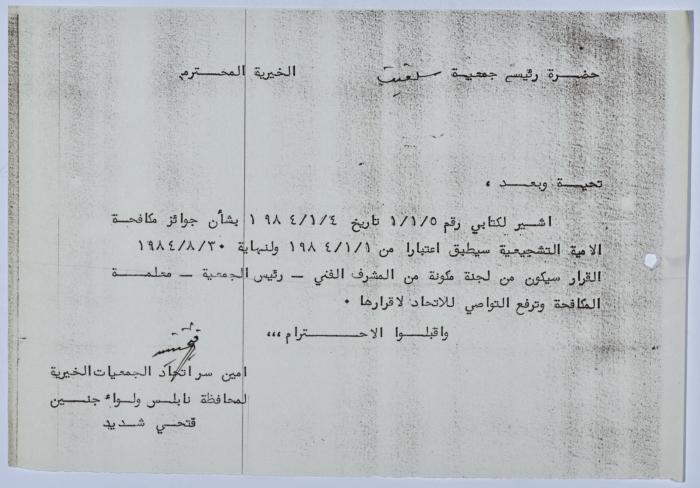 حضرة رئيس جمعية سلفيت الخيرية المحترم
تحية وبعد ،
اشير لكتابي رقم ١/١/٥ تاريخ ١٩٨٤/١/٤ بشأن جوائز مكافحة
الامية التشجيعية سيطبق اعتبارا من ١٩٨٤/١/١ ولنهاية ١٩٨٤/٨/٣٠
القرار سيكون من لجنة مكونة من المشرف الفني - رئيس الجمعية - معلمة
المكافحة وترفع التواصي للاتحاد لاقرارها .
واقبلوا الاحترام ،،،
امين سر اتحاد الجمعيات الخيرية
لمحافظة نابلس ولواء جنين
فتحي شديد